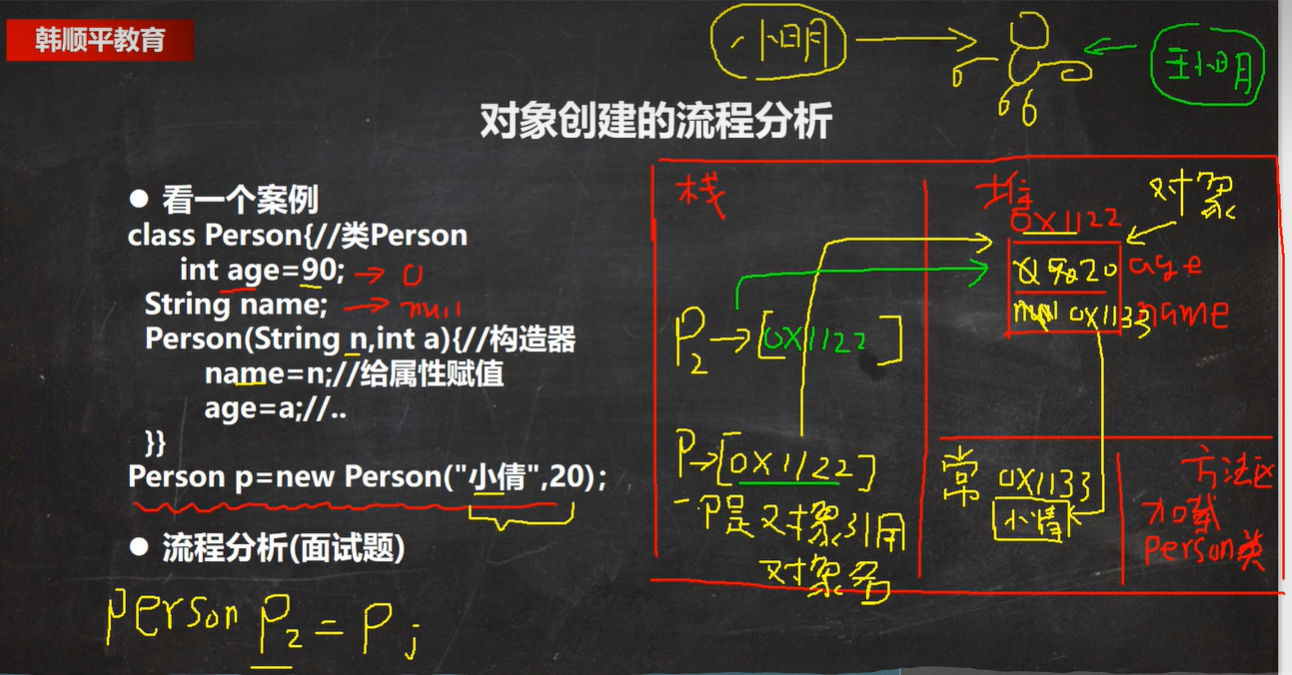 韩顺平教育
小明
王小明
对象创建的流程分析
● 看一个案例
class Person{//类Person
int age=90; → 0
String name; → null
Person(String n,int a){//构造器
name=n;//给属性赋值
age=a;//..
}}
Person p=new Person("小倩",20);
● 流程分析(面试题)
Person P2 = P;
栈
P2→[0X1122]
P→[0X1122]
P是对象引用
对象名
堆
对象
0X1122
20 age
0X1133 name
常
0X1133
小倩
方法区
加载
Person类